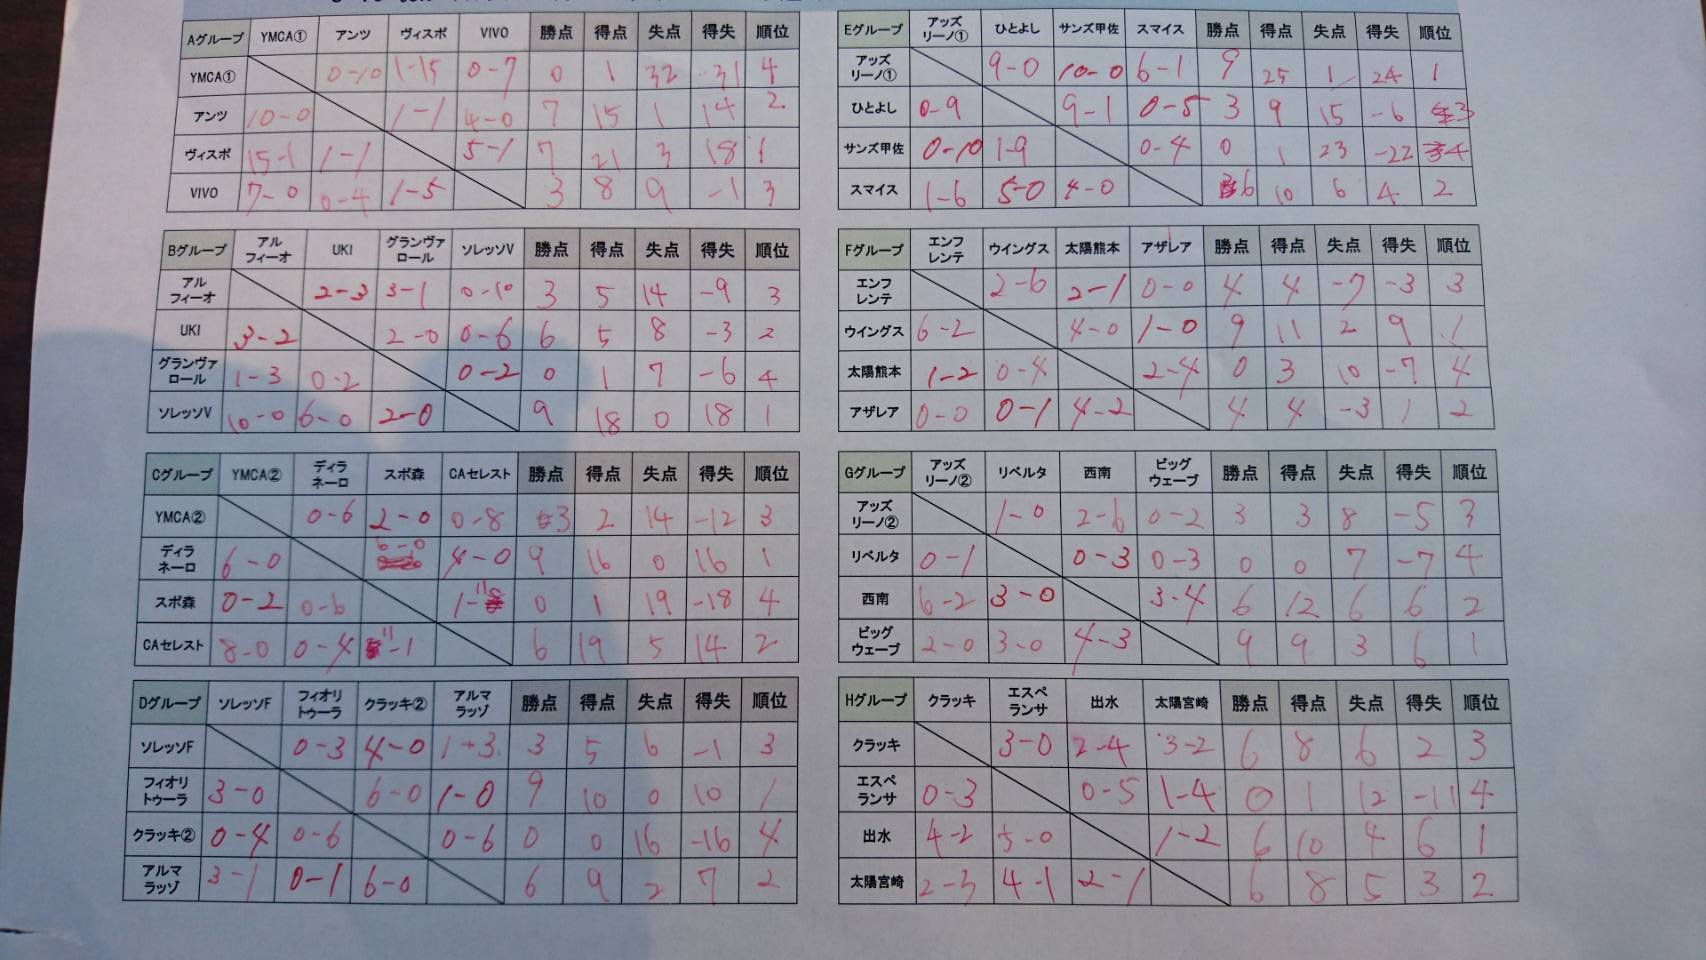 Aグループ YMCA① アンツ ヴィスポ VIVO 勝点 得点 失点 得失 順位
YMCA① 0-10 1-15 0-7 0 1 32 -31 4
アンツ 10-0 1-1 4-0 7 15 1 14 2
ヴィスポ 15-1 1-1 5-1 7 21 3 18 1
VIVO 7-0 0-4 1-5 3 8 9 -1 3
Bグループ アルフィーオ UKI グランヴァロール ソレッソV 勝点 得点 失点 得失 順位
アルフィーオ 2-3 3-1 0-10 3 5 14 -9 3
UKI 3-2 2-0 0-6 6 5 8 -3 2
グランヴァロール 1-3 0-2 0-2 0 1 7 -6 4
ソレッソV 10-0 6-0 2-0 9 18 0 18 1
Cグループ YMCA② ディラネーロ スポ森 CAセレスト 勝点 得点 失点 得失 順位
YMCA② 0-6 2-0 0-8 3 2 14 -12 3
ディラネーロ 6-0 6-0 4-0 9 16 0 16 1
スポ森 0-2 0-6 1-11 0 1 19 -18 4
CAセレスト 8-0 0-4 11-1 6 19 5 14 2
Dグループ ソレッソF フィオリトゥーラ クラッキ② アルマラッゾ 勝点 得点 失点 得失 順位
ソレッソF 0-3 4-0 1-3 3 5 6 -1 3
フィオリトゥーラ 3-0 6-0 1-0 9 10 0 10 1
クラッキ② 0-4 0-6 0-6 0 0 16 -16 4
アルマラッゾ 3-1 0-1 6-0 6 9 2 7 2
Eグループ アッズリーノ① ひとよし サンズ甲佐 スマイス 勝点 得点 失点 得失 順位
アッズリーノ① 9-0 10-0 6-1 9 25 1 24 1
ひとよし 0-9 9-1 0-5 3 9 15 -6 3
サンズ甲佐 0-10 1-9 0-4 0 1 23 -22 4
スマイス 1-6 5-0 4-0 6 10 6 4 2
Fグループ エンフレンテ ウイングス 太陽熊本 アザレア 勝点 得点 失点 得失 順位
エンフレンテ 2-6 2-1 0-0 4 4 -7 -3 3
ウイングス 6-2 4-0 1-0 9 11 2 9 1
太陽熊本 1-2 0-4 2-4 0 3 10 -7 4
アザレア 0-0 0-1 4-2 4 4 -3 1 2
Gグループ アッズリーノ② リベルタ 西南 ビッグウェーブ 勝点 得点 失点 得失 順位
アッズリーノ② 1-0 2-6 0-2 3 3 8 -5 3
リベルタ 0-1 0-3 0-3 0 0 7 -7 4
西南 6-2 3-0 3-4 6 12 6 6 2
ビッグウェーブ 2-0 3-0 4-3 9 9 3 6 1
Hグループ クラッキ エスペランサ 出水 太陽宮崎 勝点 得点 失点 得失 順位
クラッキ 3-0 2-4 3-2 6 8 6 2 3
エスペランサ 0-3 0-5 1-4 0 1 12 -11 4
出水 4-2 5-0 1-2 6 10 4 6 1
太陽宮崎 2-3 4-1 2-1 6 8 5 3 2